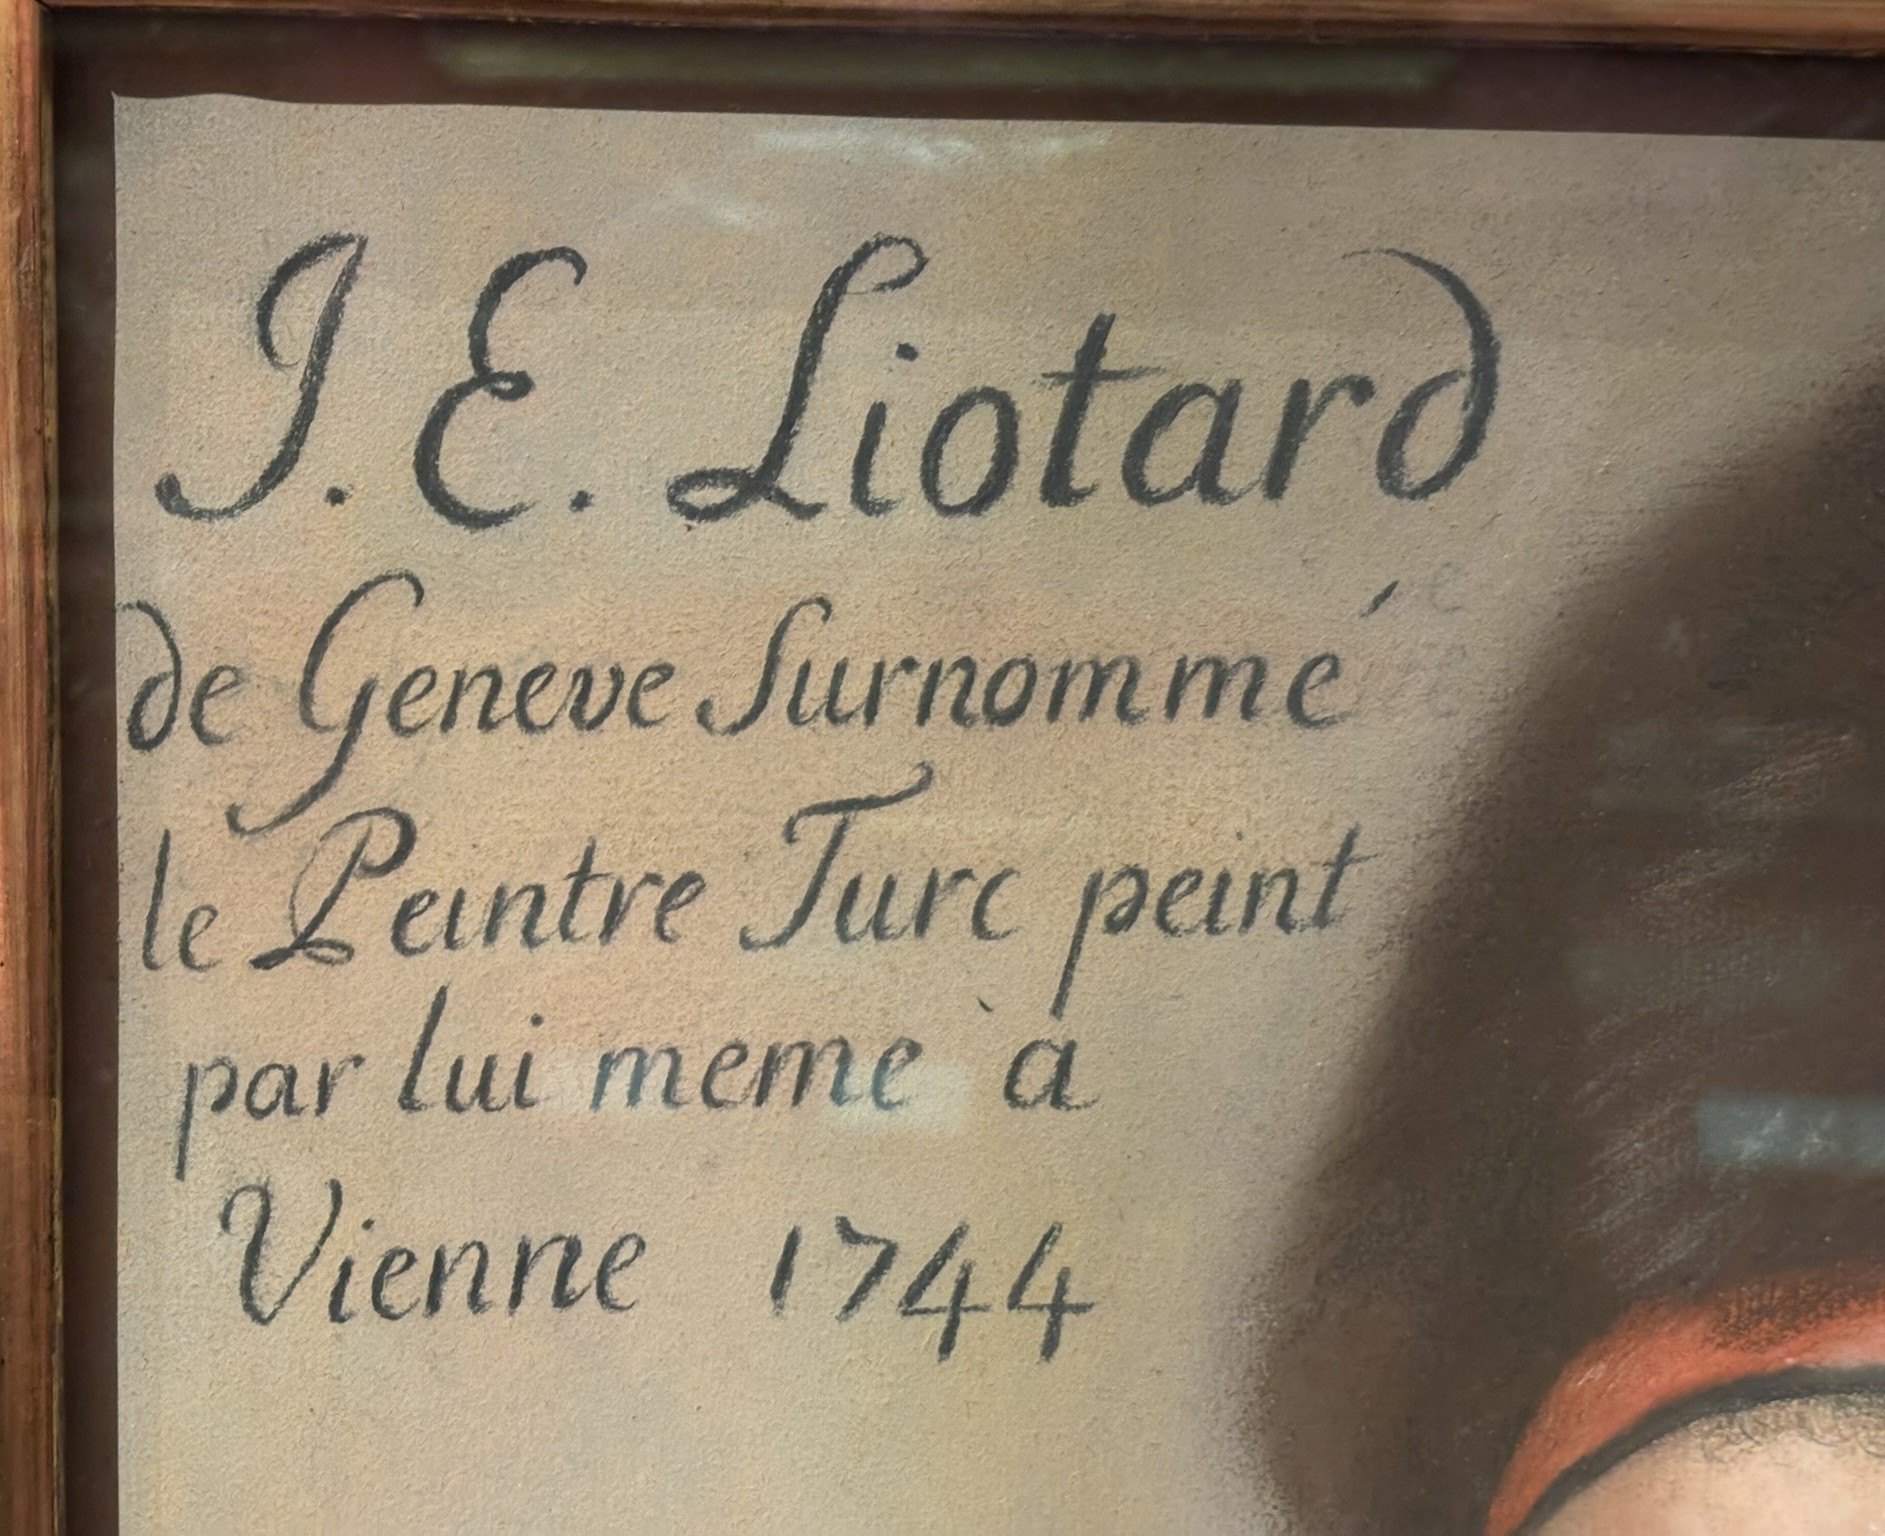 J. E. Liotard
de Geneve Surnommé
le Peintre Turc peint
par lui meme à
Vienne 1744